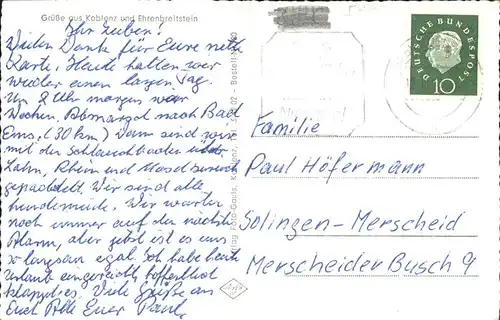 Grüße aus Koblenz und Ehrenbreitstein
Ihr Lieben!
Vielen Dank für Eure nette
Karte. Heute hatten wir
wieder einen langen Tag.
Um 2 Uhr morgens war
Wecken. Abmarsch nach Bad
Ems, (30 km) Dann sind wir
mit den Schlauchbooten über
Lahn, Rhein und Mosel zurück
gepaddelt. Wir sind alle
hundemüde. Wir warten
noch immer auf den nächsten
Alarm, aber jetzt ist es uns
so langsam egal. Ich habe heute
Urlaub eingereicht hoffentlich
klappt es. Viele Grüße an
Euch Alle Euer Paul
DEUTSCHE BUNDESPOST
10
Familie
Paul Höfermann
Solingen-Merscheid
Merscheider Busch 9